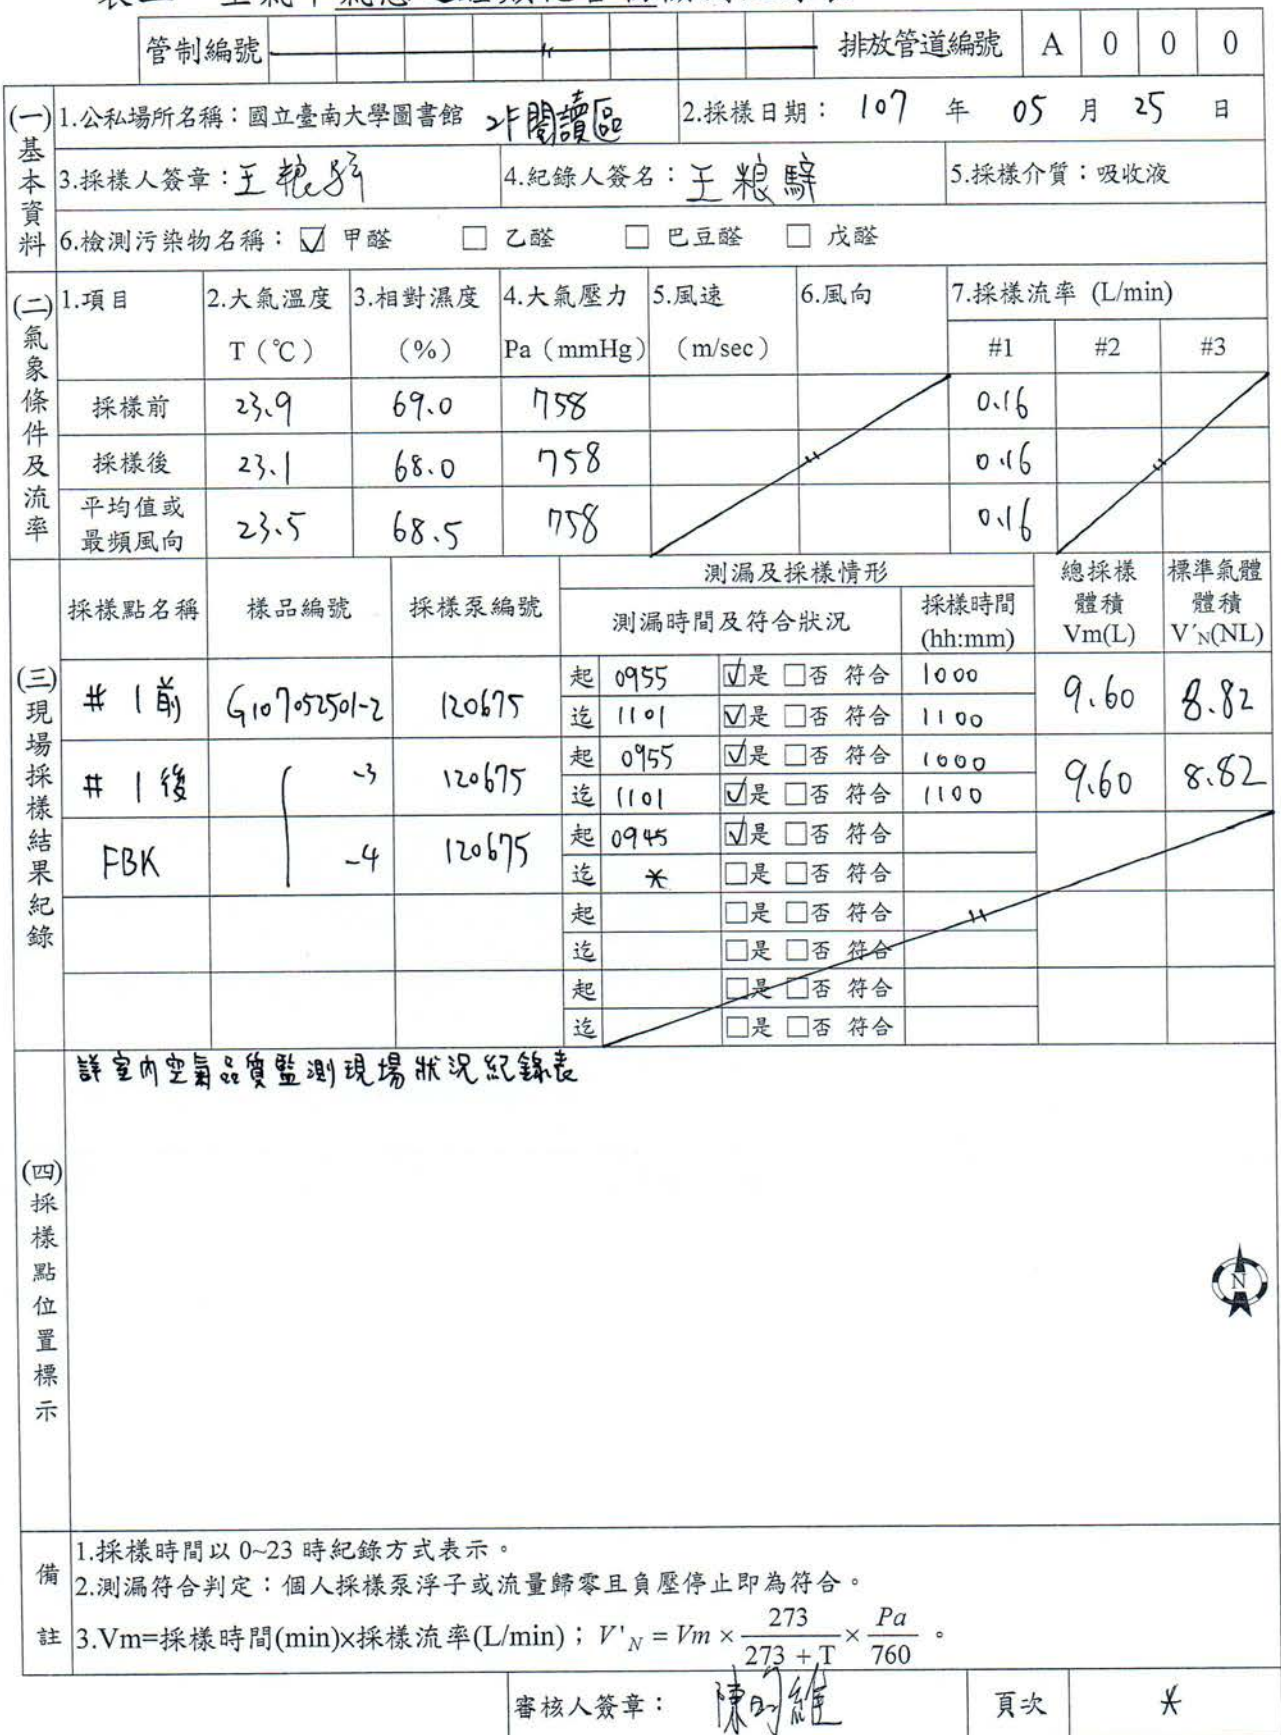 管制編號 排放管道編號 A 0 0 0
(一)基本資料
1.公私場所名稱：國立臺南大學圖書館 2F閱讀區 2.採樣日期： 107 年 05 月 25 日
3.採樣人簽章： 4.紀錄人簽名： 5.採樣介質：吸收液
6.檢測污染物名稱：☑ 甲醛 □ 乙醛 □ 巴豆醛 □ 戊醛
(二)氣象條件及流率
1.項目 2.大氣溫度 3.相對濕度 4.大氣壓力 5.風速 6.風向 7.採樣流率 (L/min)
T（℃） （%） Pa（mmHg） （m/sec） #1 #2 #3
採樣前 23.9 69.0 758 0.16
採樣後 23.1 68.0 758 0.16
平均值或
最頻風向 23.5 68.5 758 0.16
(三)現場採樣結果紀錄
採樣點名稱 樣品編號 採樣泵編號 測漏及採樣情形 總採樣體積Vm(L) 標準氣體體積V´N(NL)
測漏時間及符合狀況 採樣時間(hh:mm)
# 1前 G107052501-2 120675 起 0955 ☑是 □否 符合 1000 9.60 8.82
迄 1101 ☑是 □否 符合 1100
# 1後 -3 120675 起 0955 ☑是 □否 符合 1000 9.60 8.82
迄 1101 ☑是 □否 符合 1100
FBK -4 120675 起 0945 ☑是 □否 符合
迄 * □是 □否 符合
起 □是 □否 符合
迄 □是 □否 符合
起 □是 □否 符合
迄 □是 □否 符合
(四)採樣點位置標示
詳室內空氣品質監測現場狀況紀錄表
N
備註
1.採樣時間以 0~23 時紀錄方式表示。
2.測漏符合判定：個人採樣泵浮子或流量歸零且負壓停止即為符合。
3.Vm=採樣時間(min)×採樣流率(L/min)；V'N = Vm × 273/(273 + T) × Pa/760 。
審核人簽章： 頁次 *